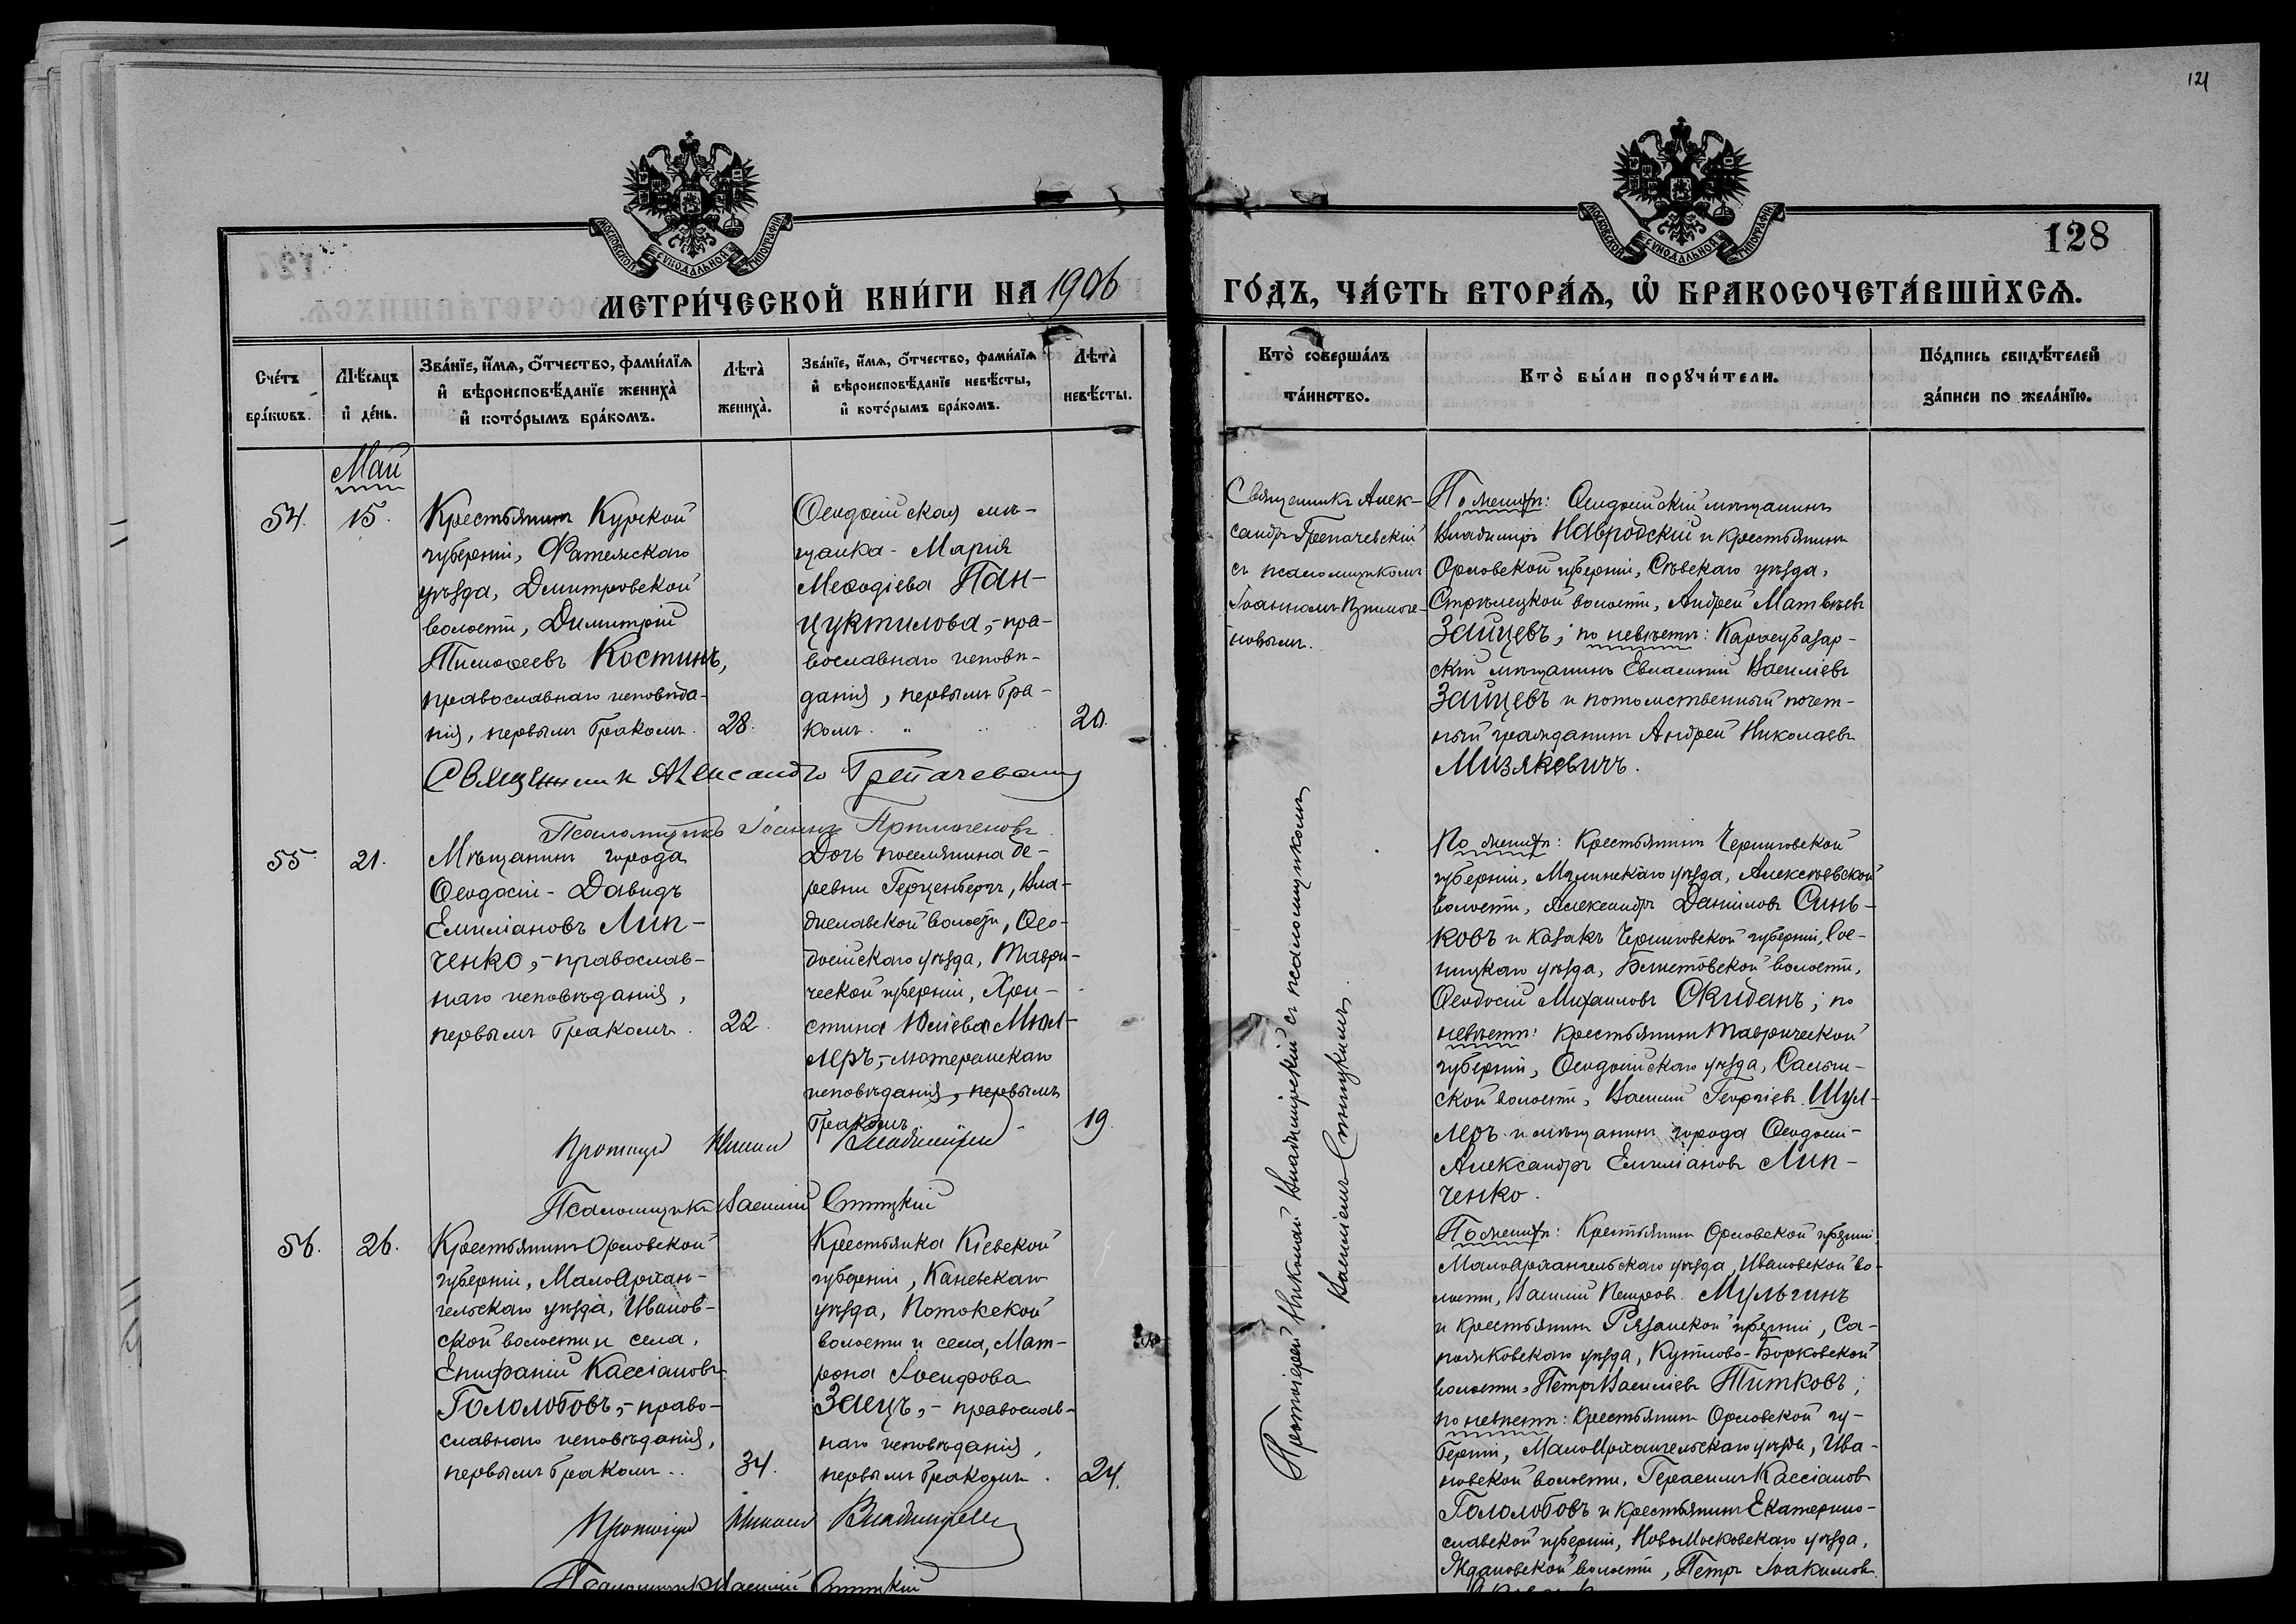 121
128
МОСКОВСКОЙ СѴНОДАЛЬНОЙ ТИПОГРАФІИ
МОСКОВСКОЙ СѴНОДАЛЬНОЙ ТИПОГРАФІИ
МЕТРИ́ЧЕСКОЙ КНИ́ГИ НА 1906
ГО́ДЪ, ЧА́СТЬ ВТОРА́Я, Ѽ БРАКОСОЧЕТА́ВШИХСЯ.
Сче́тъ
бра́кѡвъ.
Мѣ́сяцъ
и де́нь.
Зва́нїе, и́мя, о́тчество, фами́лїя
и вѣроисповѣ́данїе жениха̀
и кото́рымъ бра́комъ.
Лѣта̀
жениха̀.
Зва́нїе, и́мя, о́тчество, фами́лїя
и вѣроисповѣ́данїе невѣ́сты,
и кото́рымъ бра́комъ.
Лѣта̀
невѣ́сты.
Кто̀ соверша́лъ
та́инство.
Кто̀ бы́ли порꙋчи́тели.
По́дпись свидѣ́телей
за́писи по жела́нїю.
Май
54.
15.
Крестьянинъ Курской
губерніи, Фатежскаго
уѣзда, Дмитровской
волости, Димитрій
Тимоѳеевъ Костинъ,
православнаго исповѣда-
нія, первымъ бракомъ.
28.
Ѳеодосійская мѣ-
щанка - Марія
Меѳодіева Пан-
цуктилова, - пра-
вославнаго исповѣ-
данія, первымъ бра-
комъ.
20.
Священникъ Алек-
сандръ Трепачевскій
съ псаломщикомъ
Іоанномъ
По женихѣ: Ѳеодосійскій мѣщанинъ
Владиміръ Навродскій и крестьянинъ
Орловской губерніи, Сѣвскаго уѣзда,
Стрѣлецкой волости, Андрей Матвѣевъ
Зайцевъ; по невѣстѣ: Карасубазар-
скій мѣщанинъ Евлампій Василіевъ
Зайцевъ и потомственный почет-
ный гражданинъ Андрей Николаевъ
Мизякевичъ.
Священник Александр Трепачевский
Псаломщикъ Іоаннъ
55.
21.
Мѣщанинъ города
Ѳеодосіи - Давидъ
Емиліановъ Лип-
ченко, - православ-
наго исповѣданія,
первымъ бракомъ.
22.
Дочь поселянина де-
ревни Герценбергъ, Вла-
диславской волости, Ѳео-
досійскаго уѣзда, Таври-
ческой губерніи, Хри-
стина Юліева Мюл-
леръ, - лютеранскаго
исповѣданія, первымъ
бракомъ
19.
По женихѣ: Крестьянинъ Черниговской
губерніи, Мглинскаго уѣзда, Алексѣевской
волости, Александръ Даниловъ Синь-
ковъ и казакъ Черниговской губерніи, Сос-
ницкаго уѣзда, волости,
Ѳеодосій Михаиловъ Скиданъ; по
невѣстѣ: Крестьянинъ Таврической
губерніи, Ѳеодосійскаго уѣзда,
ской волости, Василій Георгіевъ Шул-
леръ и мѣщанинъ города Ѳеодосіи -
Александръ Емиліановъ Лип-
ченко.
Протоіерей Николай Владимірскій
Псаломщикъ Василій
Протоіерей Николай Владимірскій съ псаломщикомъ
Василіемъ
56.
26.
Крестьянинъ Орловской
губерніи, МалоАрхан-
гельскаго уѣзда, Иванов-
ской волости и села,
Епифаній Кассіановъ
Гололобовъ, - право-
славнаго исповѣданія,
первымъ бракомъ..
34.
Крестьянка Кіевской
губерніи, Каневскаго
уѣзда, Потокской
волости и села, Мат-
рона Іосифова
Заецъ, - православ-
наго исповѣданія,
первымъ бракомъ.
24.
По женихѣ: Крестьянинъ Орловской губерніи,
МалоАрхангельскаго уѣзда, Ивановской во-
лости, Василій Петровъ Мульгинъ
и крестьянинъ Рязанской губерніи, Са-
пожковскаго уѣзда, Борковской
волости, Петръ Василіевъ Титковъ;
по невѣстѣ: Крестьянинъ Орловской гу-
берніи, МалоАрхангельскаго уѣзда, Ива-
новской волости, Герасимъ Кассіановъ
Гололобовъ и крестьянинъ Екатерино-
славской губерніи, НовоМосковскаго уѣзда,
Ждановской волости, Петръ Іоакимовъ
Протоіерей Николай Владимірскій
Псаломщикъ Василій